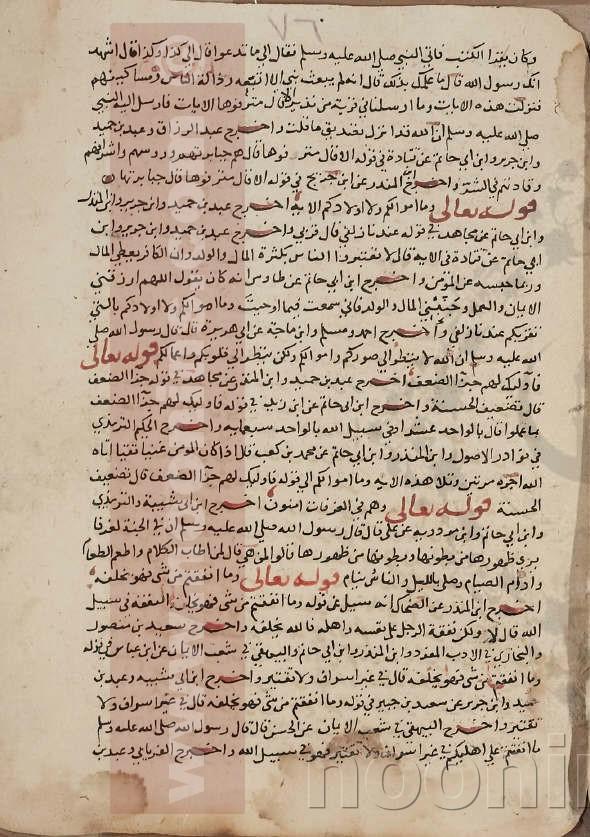 ٧٦
وكان يقرا الكتب فاتي النبي صلي الله عليه وسلم فقال الي ما تدعوا قال الي كذا وكذا قال اشهد
انك رسول الله قال ما علمك بذلك قال انه لم يبعث نبي الا اتبعه رذالة الناس ومساكينهم
فنزلت هذه الايات وما ارسلنا في قرية من نذير الا قال مترفوها الايات فارسل اليه النبي
صلي الله عليه وسلم ان الله قد انزل تصديق ما قلت واخرج عبد الرزاق وعبد بن حميد
وابن جرير وابن ابي حاتم عن قتادة في قوله الا قال مترفوها قال هم جبابرتهم وروسهم واشرافهم
وقادتهم في الشر واخرج ابن المنذر عن ابن جريج في قوله الا قال مترفوها قال جبابرتها
قوله تعالى وما اموالكم ولا اولادكم الاية اخرج عبد بن حميد وابن جرير وابن المنذر
وابن ابي حاتم عن مجاهد في قوله عندنا زلفي قال قربي واخرج عبد بن حميد وابن جرير وابن
ابي حاتم عن قتادة في الاية قال لا تعتبروا الناس بكثرة المال والولد وان الكافر يعطي المال
وربما حبسه عن المؤمن واخرج ابن ابي حاتم عن طاوس انه كان يقول اللهم ارزقني
الايمان والعمل وجنبني المال والولد فاني سمعت فيما اوحيت وما اموالكم ولا اولادكم بالتي
تقربكم عندنا زلفي واخرج احمد ومسلم وابن ماجة عن ابي هريرة قال قال رسول الله صلي
الله عليه وسلم ان الله لا ينظر الي صوركم واموالكم ولكن ينظر الي قلوبكم واعمالكم قوله تعالى
فاولئك لهم جزا الضعف اخرج عبد بن حميد وابن المنذر عن مجاهد في قوله جزا الضعف
قال تضعيف الحسنة واخرج ابن ابي حاتم عن ابن زيد في قوله فاولئك لهم جزا الضعف
بما عملوا قال بالواحد عشرا وفي سبيل الله بالواحد سبعماية واخرج الحكيم الترمذي
في نوادر الاصول وابن المنذر وابن ابي حاتم عن محمد بن كعب قال اذا كان المومن غنيا تقيا اتاه
الله اجره مرتين وتلا هذه الاية وما اموالكم الي قوله فاوليك لهم جزا الضعف قال تضعيف
الحسنة قوله تعالى وهم في الغرفات امنون اخرج ابن ابي شيبة والترمذي
وابن ابي حاتم وابن مردويه عن علي قال قال رسول الله صلي الله عليه وسلم ان في الجنة لغرفا
يري ظهورها من بطونها وبطونها من ظهورها قالوا لمن هي قال لمن اطاب الكلام واطعم الطعام
وادام الصيام وصلي بالليل والناس نيام قوله تعالى وما انفقتم من شي فهو يخلفه
اخرج ابن المنذر عن الضحاك انه سيل عن قوله وما انفقتم من شي فهو يخلفه النفقة في سبيل
الله قال لا ولكن نفقة الرجل علي نفسه واهله فالله يخلفه واخرج سعيد بن منصور
والبخاري في الادب المفرد وابن المنذر وابن ابي حاتم والبيهقي في شعب الايمان عن ابن عباس في قوله
وما انفقتم من شي فهو يخلفه قال في غير اسراف ولا تقتير واخرج ابن ابي شيبة وعبد بن
حميد وابن جرير عن سعيد بن جبير في قوله وما انفقتم من شي فهو يخلفه قال في غير اسراف ولا
تقتير واخرج البيهقي في شعب الايمان عن الحسن قال قال رسول الله صلي الله عليه وسلم
ما انفقتم علي اهليكم في غير اسراف ولا تقتير فهو في سبيل الله واخرج الفريابي وعبد بن